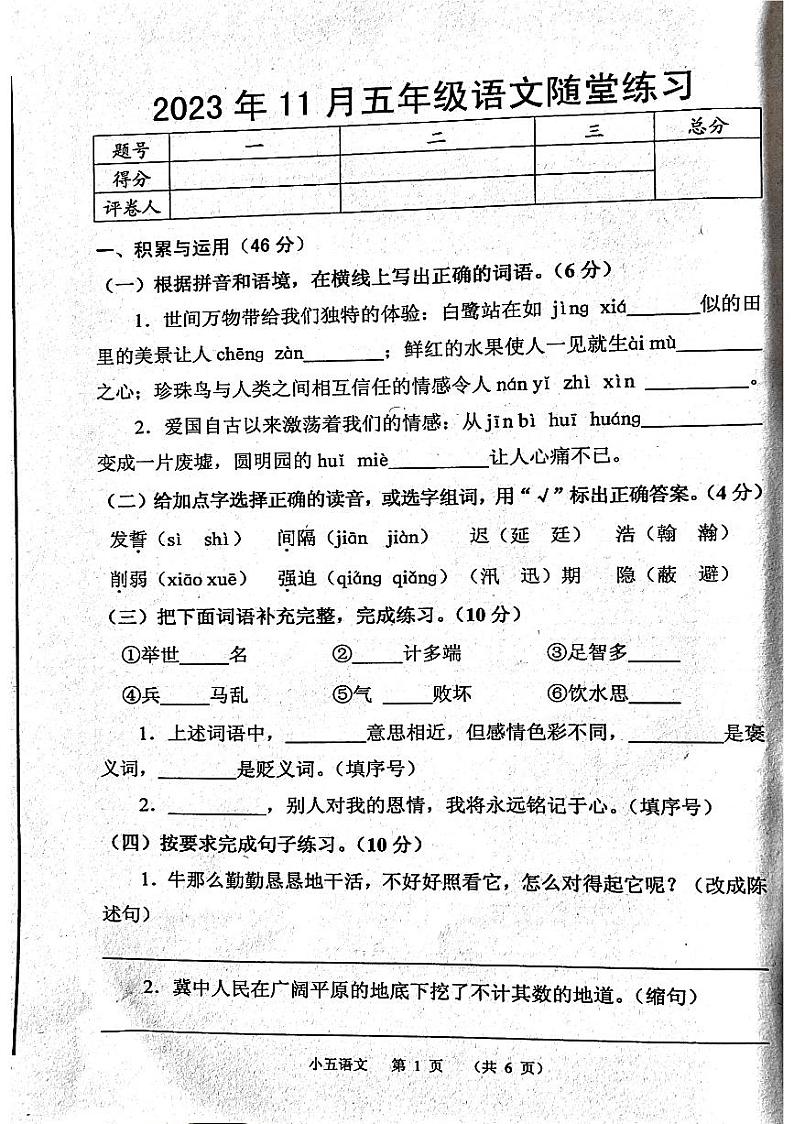 2023年11月五年级语文随堂练习
题号 一 二 三 总分
得分
评卷人
一、积累与运用（46分）
（一）根据拼音和语境，在横线上写出正确的词语。（6分）
1．世间万物带给我们独特的体验：白鹭站在如 jìng xiá_______似的田
里的美景让人chēng zàn________；鲜红的水果使人一见就生ài mù________
之心；珍珠鸟与人类之间相互信任的情感令人nán yǐ zhì xìn __________。
2．爱国自古以来激荡着我们的情感：从jīn bì huī huáng____________
变成一片废墟，圆明园的huǐ miè__________让人心痛不已。
（二）给加点字选择正确的读音，或选字组词，用“√”标出正确答案。（4分）
发誓（sì shì） 间隔（jiān jiàn） 迟（延 廷） 浩（翰 瀚）
削弱（xiāo xuē） 强迫（qiáng qiǎng）（汛 迅）期 隐（蔽 避）
（三）把下面词语补充完整，完成练习。（10分）
①举世_____名 ②_____计多端 ③足智多_____
④兵_____马乱 ⑤气_____败坏 ⑥饮水思_____
1．上述词语中，________意思相近，但感情色彩不同，_________是褒
义词，________是贬义词。（填序号）
2．__________，别人对我的恩情，我将永远铭记于心。（填序号）
（四）按要求完成句子练习。（10分）
1．牛那么勤勤恳恳地干活，不好好照看它，怎么对得起它呢？（改成陈
述句）
2．冀中人民在广阔平原的地底下挖了不计其数的地道。（缩句）
小五语文 第 1 页 （共 6 页）